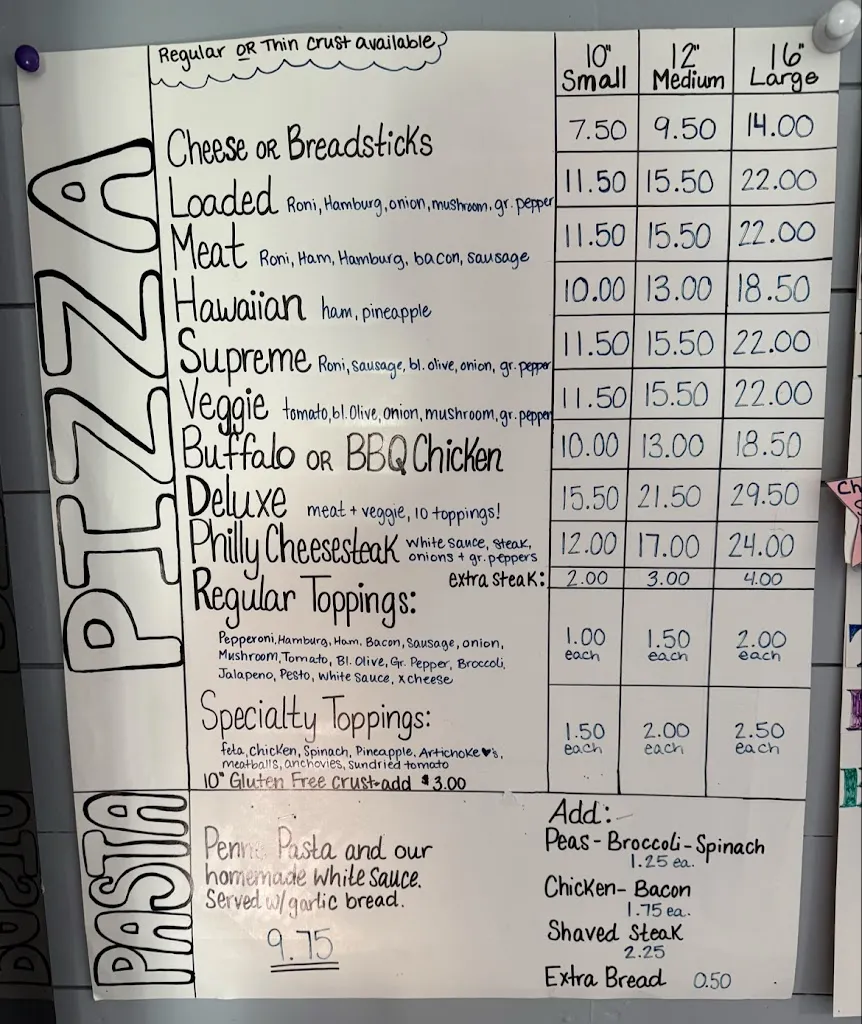 Regular OR Thin crust available
10" Small 12" Medium 16" Large
PIZZA
Cheese OR Breadsticks 7.50 9.50 14.00
Loaded Roni, Hamburg, onion, mushroom, gr. pepper 11.50 15.50 22.00
Meat Roni, Ham, Hamburg, bacon, sausage 11.50 15.50 22.00
Hawaiian ham, pineapple 10.00 13.00 18.50
Supreme Roni, sausage, bl. olive, onion, gr. pepper 11.50 15.50 22.00
Veggie tomato, bl. Olive, onion, mushroom, gr. pepper 11.50 15.50 22.00
Buffalo OR BBQ Chicken 10.00 13.00 18.50
Deluxe meat + veggie, 10 toppings! 15.50 21.50 29.50
Philly Cheesesteak white sauce, steak, onions + gr. peppers 12.00 17.00 24.00
extra steak: 2.00 3.00 4.00
Regular Toppings:
Pepperoni, Hamburg, Ham, Bacon, Sausage, onion,
Mushroom, Tomato, Bl. Olive, Gr. Pepper, Broccoli,
Jalapeno, Pesto, White Sauce, xcheese
1.00 each 1.50 each 2.00 each
Specialty Toppings:
feta, chicken, Spinach, Pineapple, Artichoke ♥'s,
meatballs, anchovies, sundried tomato
1.50 each 2.00 each 2.50 each
10" Gluten Free Crust-add $3.00
PASTA
Pasta and our
homemade White Sauce.
Served w/garlic bread.
9.75
Add:
Peas - Broccoli - Spinach
1.25 ea.
Chicken - Bacon
1.75 ea.
Shaved Steak
2.25
Extra Bread 0.50